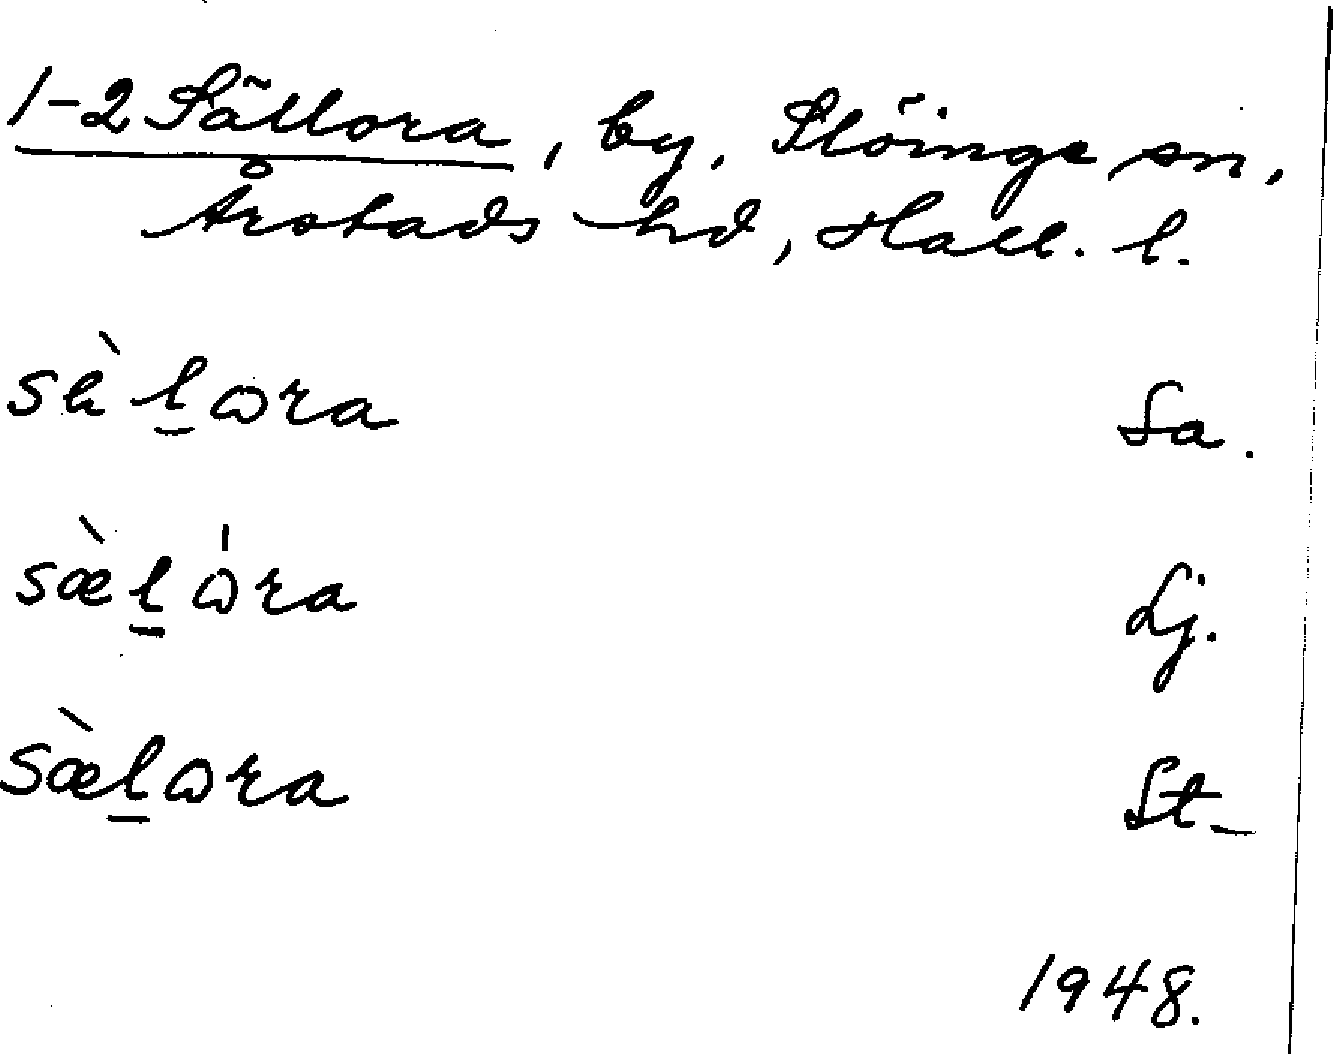 1-2 Sällora, by, Slöinge sn,
Årstads hd, Hall. l.
sä̀l̠ɷra Sa.
sæ̀l̠ɷ̍ra Lj.
sæ̀l̠ɷra St.
1948.